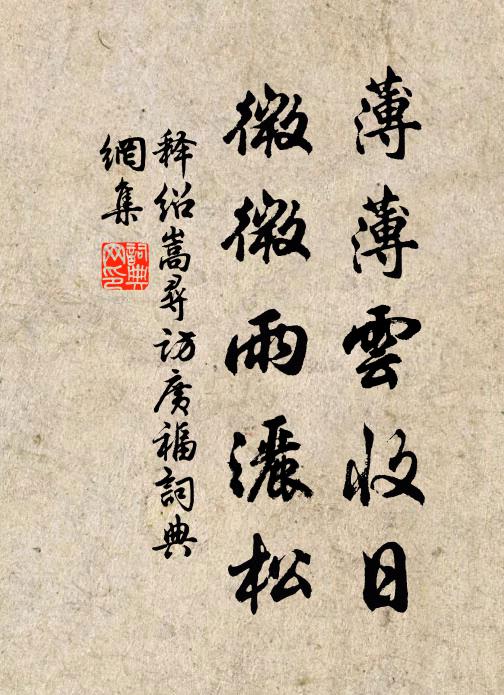 薄薄雲收日
微微雨灑松
释绍嵩尋访廣福詞典
網集
詞典
网印